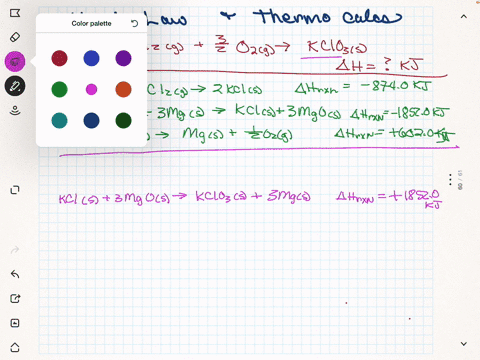 Color palette
Law & Thermo calos
2 (g) + 3/2 O₂(g) → KClO₃(s)
ΔH = ? KJ
Cl₂(g) → 2 KCl(s) ΔHrxn = -874.0 KJ
+ 3Mg(s) → KCl(s) + 3MgO(s) ΔHrxn = -1852.0 KJ
→ Mg(s) + 1/2 O₂(g) ΔHrxn = KJ
KCl(s) + 3MgO(s) → KClO₃(s) + 3Mg(s) ΔHrxn = +1852.0 KJ